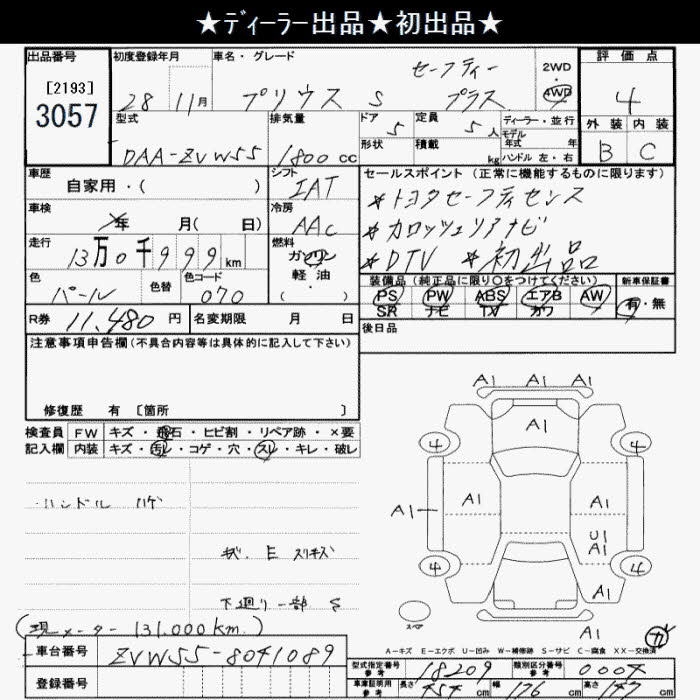 ★ディーラー出品★初出品★
出品番号
[2193]
3057
初度登録年月
28 11月
車名・グレード
プリウス S セーフティープラス
2WD
・
4WD
評価点
4
外装 内装
B C
型式
DAA-ZVW55
排気量
1800 cc
ドア 5
形状
定員 5 人
積載 kg
ディーラー・並行
モデル年式 年
ハンドル 左・右
車歴
自家用・( )
シフト
IAT
セールスポイント (正常に機能するものに限ります)
*トヨタセーフティセンス
*カロッツェリアナビ
*DTV *初出品
車検
年 月( 日)
冷房
AAC
走行
13万0千999km
燃料
ガソリン
軽油
・( )
色
パール
色替
色コード
070
装備品 (純正品に限り○をつけてください)
PS PW ABS エアB AW
SR ナビ TV カワ
新車保証書
有・無
R券 11,480 円
名変期限 月 日
後日品
注意事項申告欄(不具合内容等は具体的に記入して下さい)
修復歴 有 [箇所 ]
検査員 FW キズ・飛石・ヒビ割・リペア跡・×要
記入欄 内装 キズ・汚レ・コゲ・穴・スレ・キレ・破レ
ハンドル ハゲ
キズ、E スリキズ
下廻り一部 S
(現メーター 131,000km)
A1 A1 A1
A1
4 4
A1 A1 A1
U1
A1
4 4
A1
A1
スペア
ガ
A-キズ E-エクボ U-凹み W-補修跡 S-サビ C-腐食 XX-交換済
車台番号 ZVW55-8041089
登録番号
型式指定番号 参考 18209
類別区分番号 参考 0004
車庫証明用 参考 長さ 454 cm 幅 176 cm 高さ 147 cm